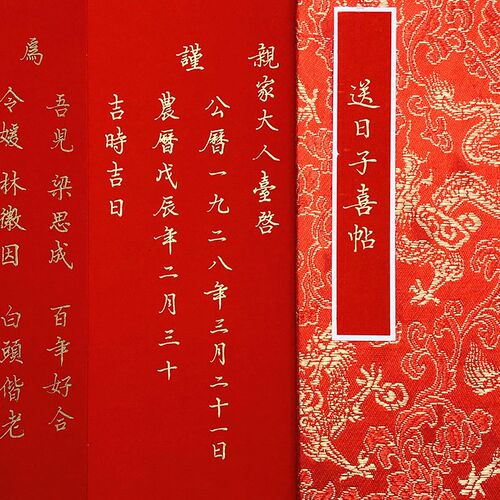 送日子喜帖
親家大人臺啓
謹
公曆一九二八年三月二十一日
農曆戊辰年二月三十
吉時吉日
為
吾児 梁思成 百年好合
令嫒 林徽因 白頭偕老